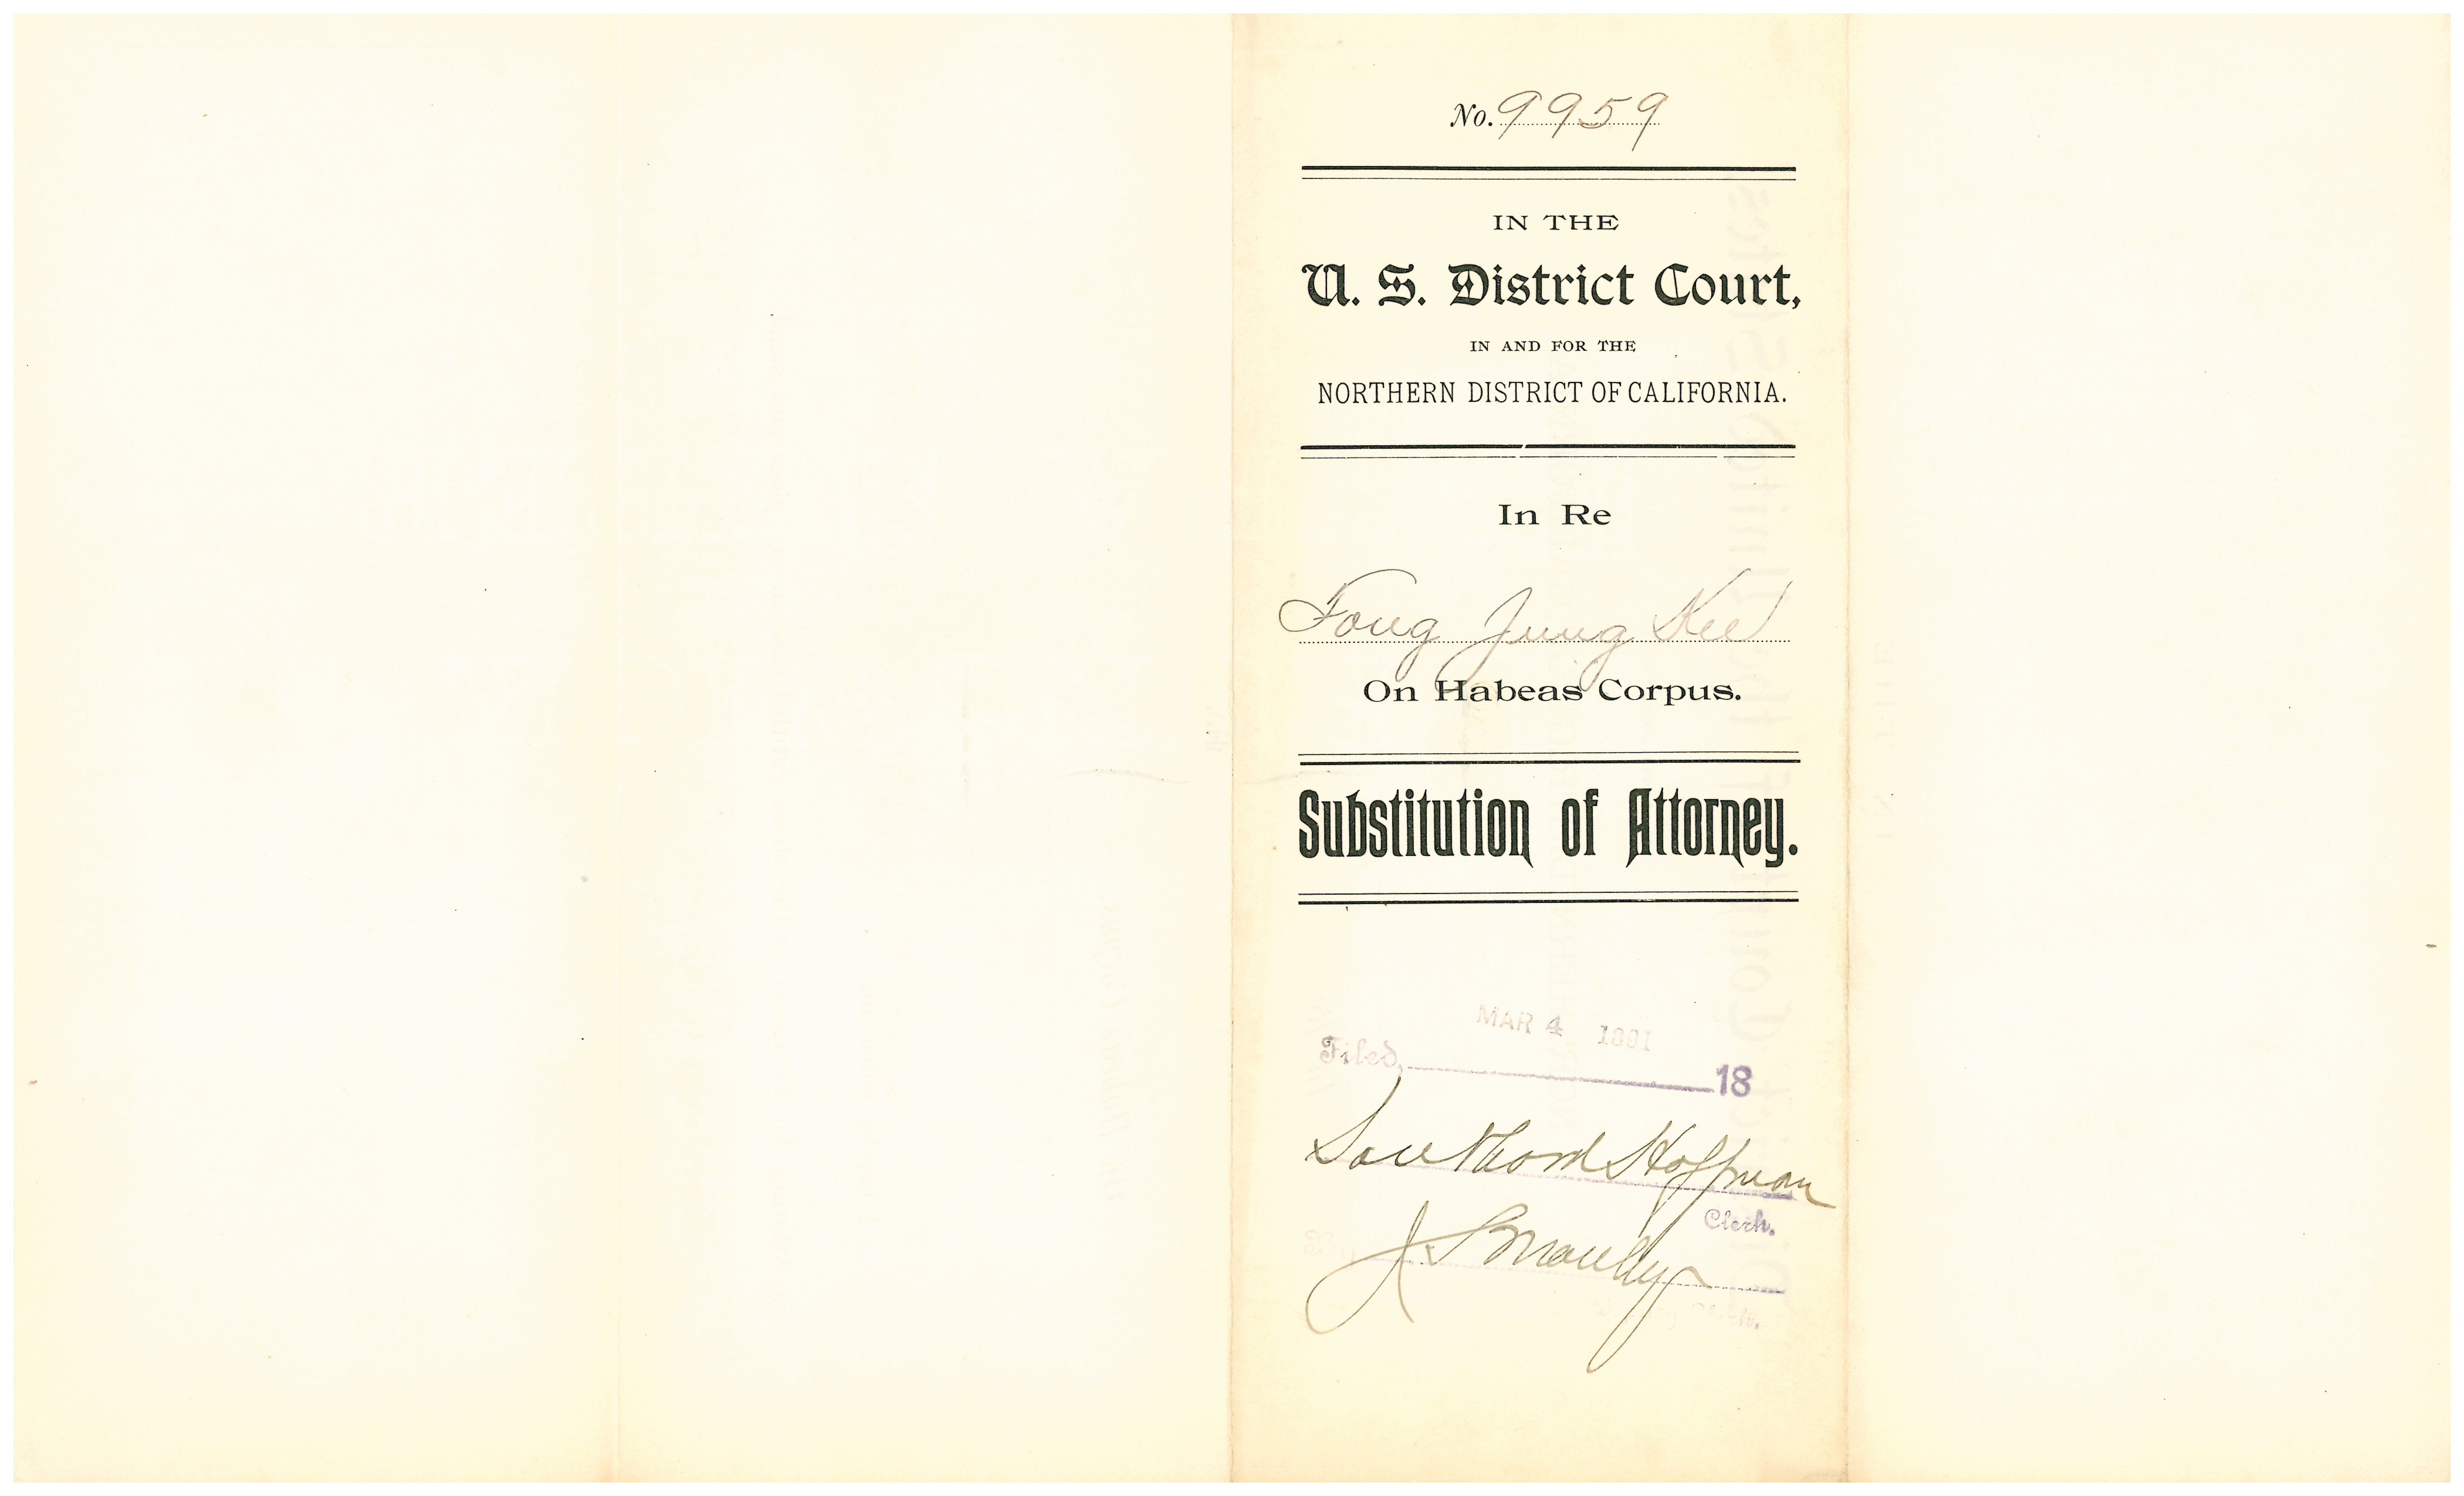 No. 9959
IN THE
U. S. District Court,
IN AND FOR THE
NORTHERN DISTRICT OF CALIFORNIA.
In Re
Fong Jung Kee
On Habeas Corpus.
Substitution of Attorney.
MAR 4 1891
Filed, 18
Southard Hoffman
Clerk.
Deputy Clerk.